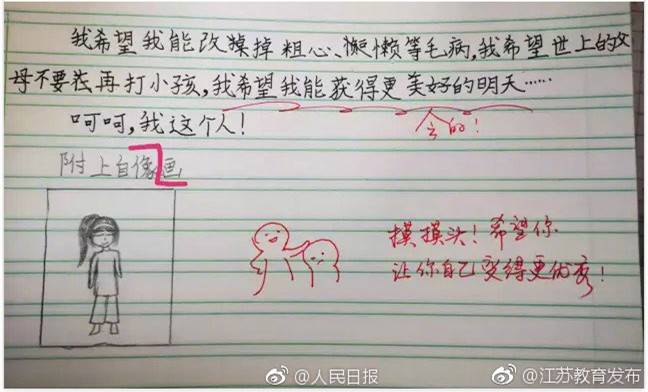 我希望我能改掉粗心、懒等毛病,我希望世上的父
母不要再打小孩,我希望我能获得更美好的明天……
会的!
呵呵,我这个人!
附上自像画
摸摸头!希望你
让你自己变得更优秀!
@人民日报
@江苏教育发布